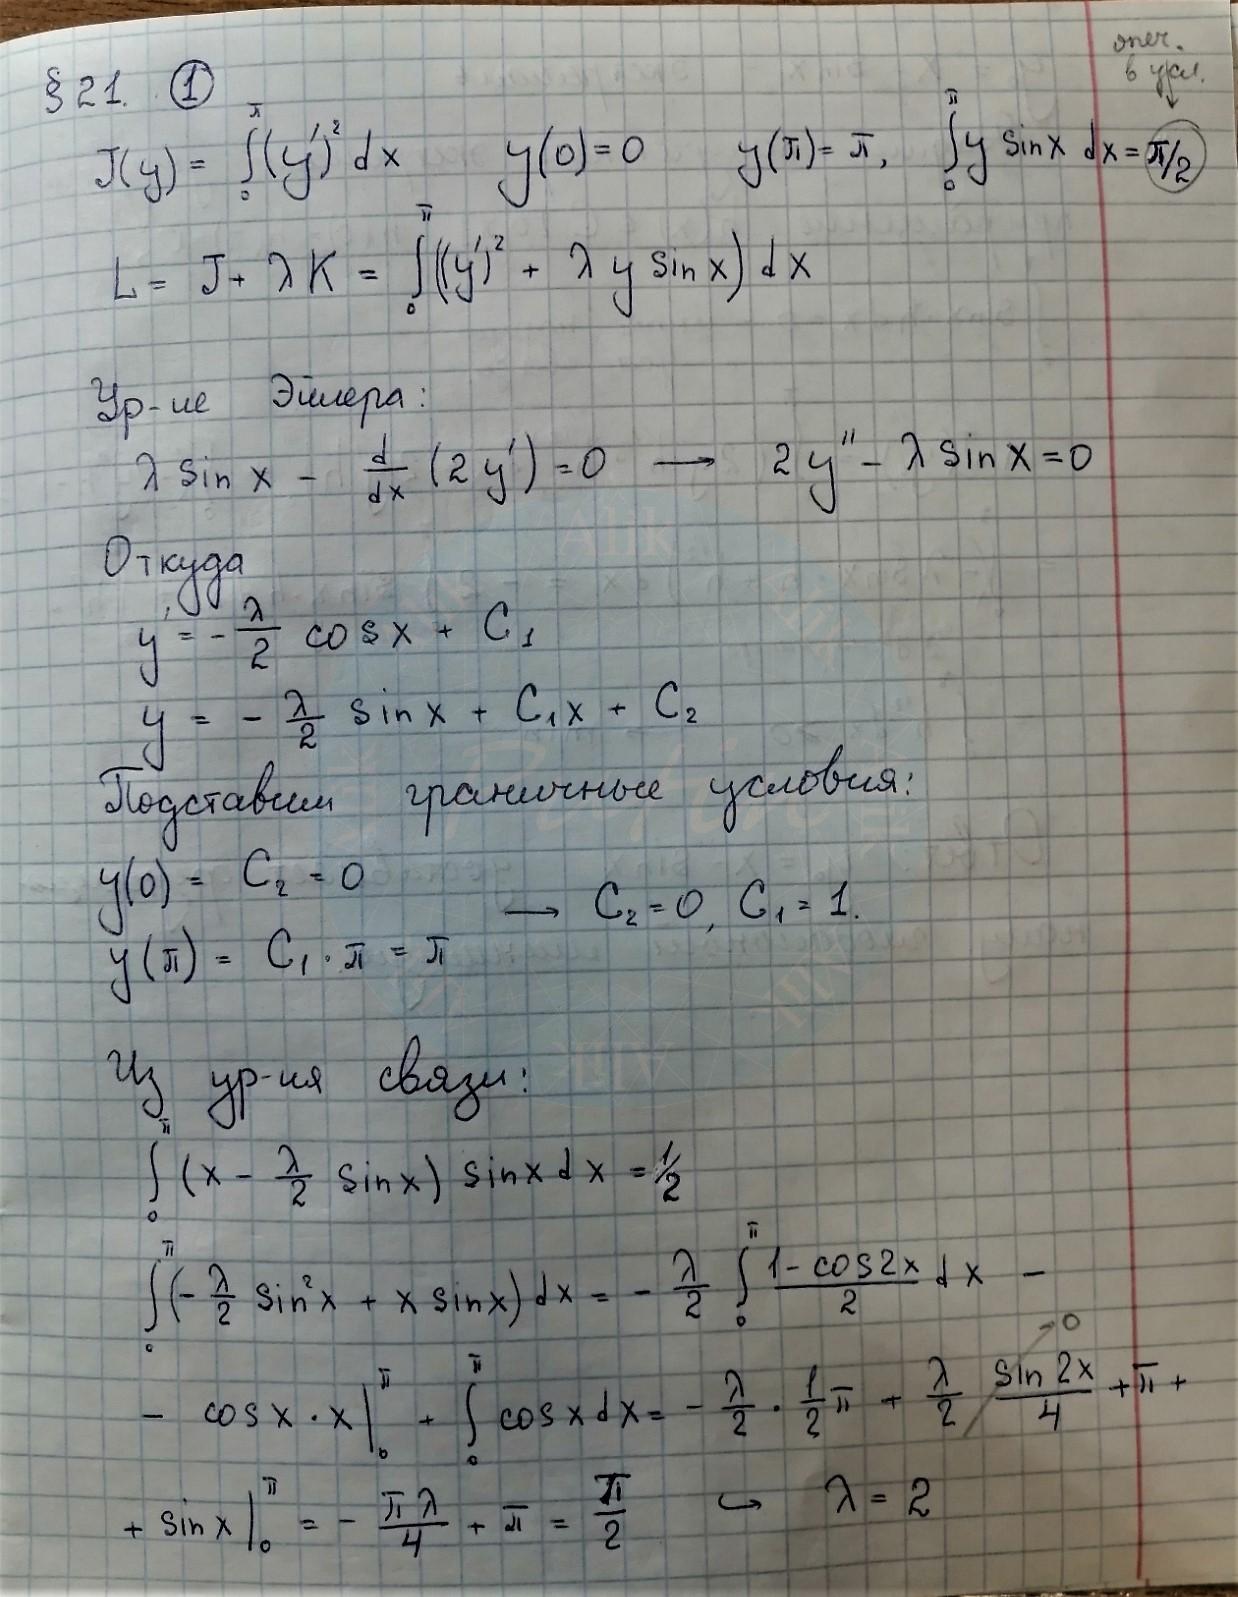 опеч.
в усл.
§ 21. ①
J(y) = ∫₀^π (y')² dx   y(0) = 0   y(π) = π,   ∫₀^π y sin x dx = π/2
L = J + λK = ∫₀^π ((y')² + λ y sin x) dx
Ур-ие Эйлера:
λ sin x - d/dx (2y') = 0 → 2y'' - λ sin x = 0
Откуда
y' = - λ/2 cos x + C₁
y = - λ/2 sin x + C₁x + C₂
Подставим граничные условия:
y(0) = C₂ = 0
→ C₂ = 0, C₁ = 1.
y(π) = C₁ · π = π
Из ур-ия связи:
∫₀^π (x - λ/2 sin x) sin x dx = 1/2
∫₀^π (- λ/2 sin² x + x sin x) dx = - λ/2 ∫₀^π (1 - cos 2x)/2 dx -
- cos x · x |₀^π + ∫₀^π cos x dx = - λ/2 · 1/2 π + λ/2 sin 2x/4 → 0 + π +
+ sin x |₀^π = - πλ/4 + π = π/2 ↪ λ = 2
Alik